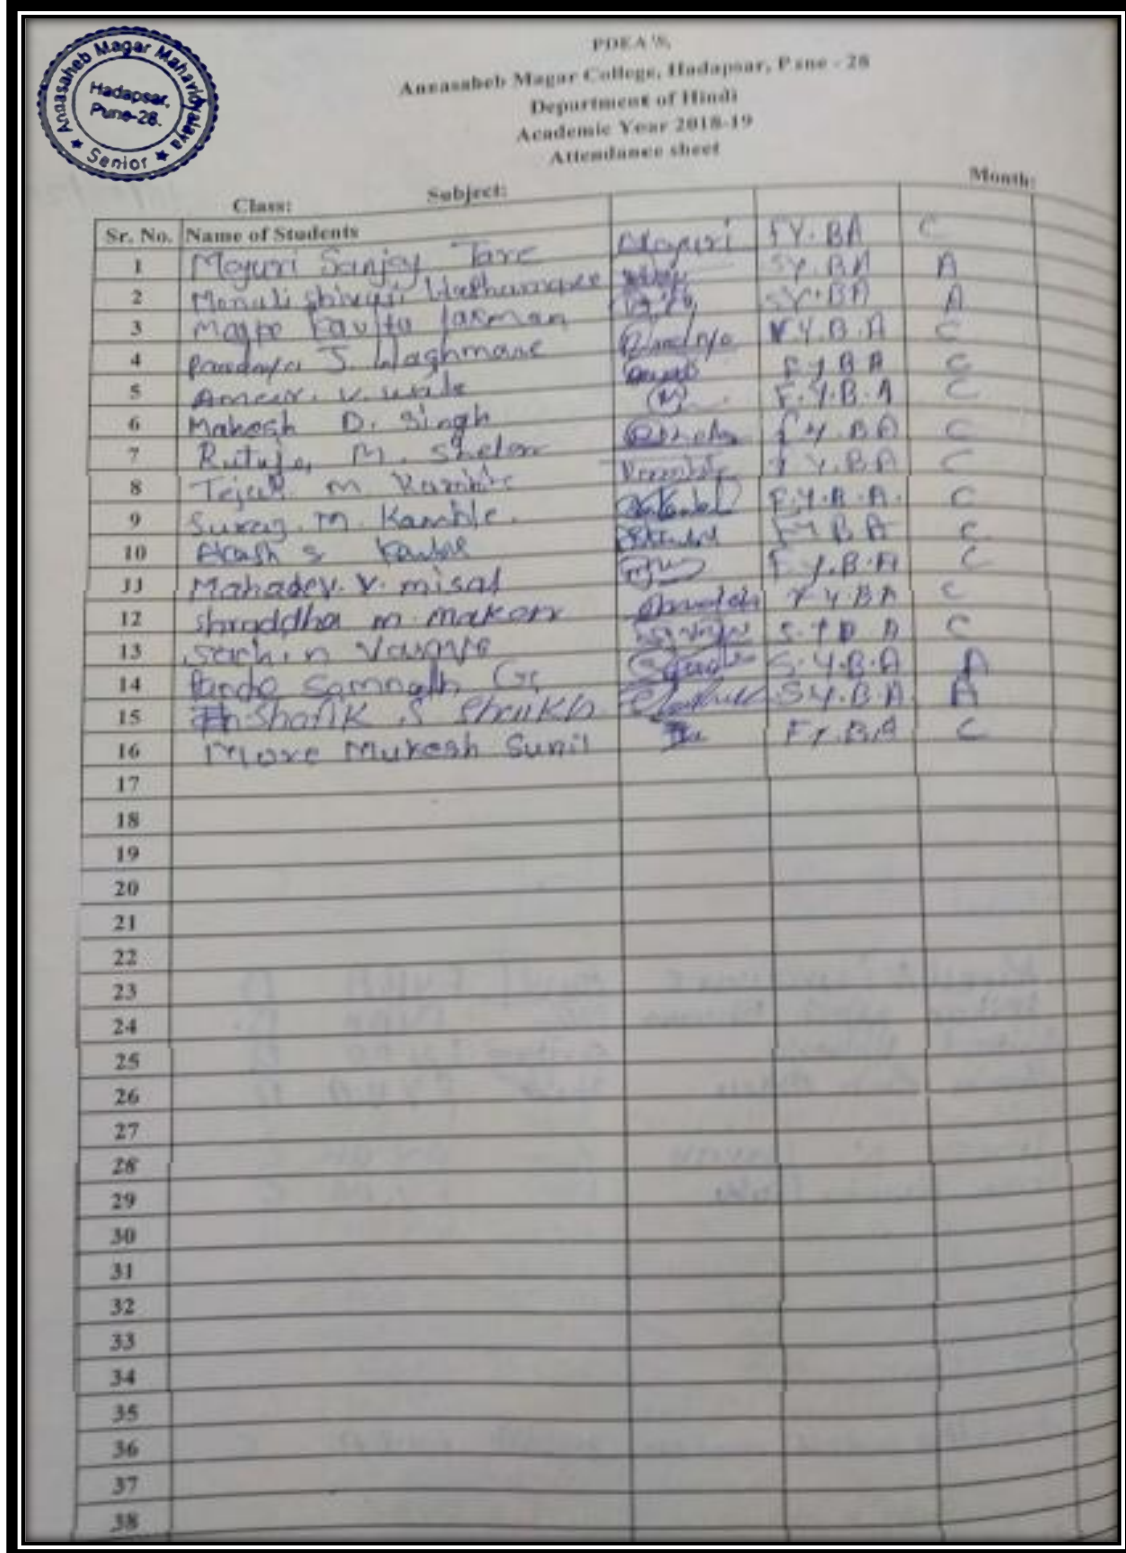 Annasaheb Magar Mahavidyalaya
Hadapsar,
Pune-28.
★ Senior ★
PDEA'S,
Annasaheb Magar College, Hadapsar, Pune - 28
Department of Hindi
Academic Year 2018-19
Attendance sheet
Class: Subject: Month:
Sr. No. Name of Students
1 Mayuri Sanjay Tare Mayuri FY.BA C
2 Monali SY.BA A
3 Magre Kavita Laxman SY.BA A
4 J. Waghmare F.Y.B.A C
5 Amar. V. F.Y.B.A C
6 Mahesh D. Singh F.Y.B.A C
7 Rutuja M. Shelar F.Y.BA C
8 Tejas M Kamble F.Y.BA C
9 Suraj. M. Kamble. F.Y.B.A. C
10 Akash S Kamble FYBA C
11 Mahadev. V. misal F.Y.B.A C
12 Shraddha m. F.Y.BA C
13 Sachin C
14 Somnath G. S.Y.B.A A
15 Shafik S Shaikh S.Y.B.A. A
16 More Mukesh Sunil F.Y.BA C
17
18
19
20
21
22
23
24
25
26
27
28
29
30
31
32
33
34
35
36
37
38